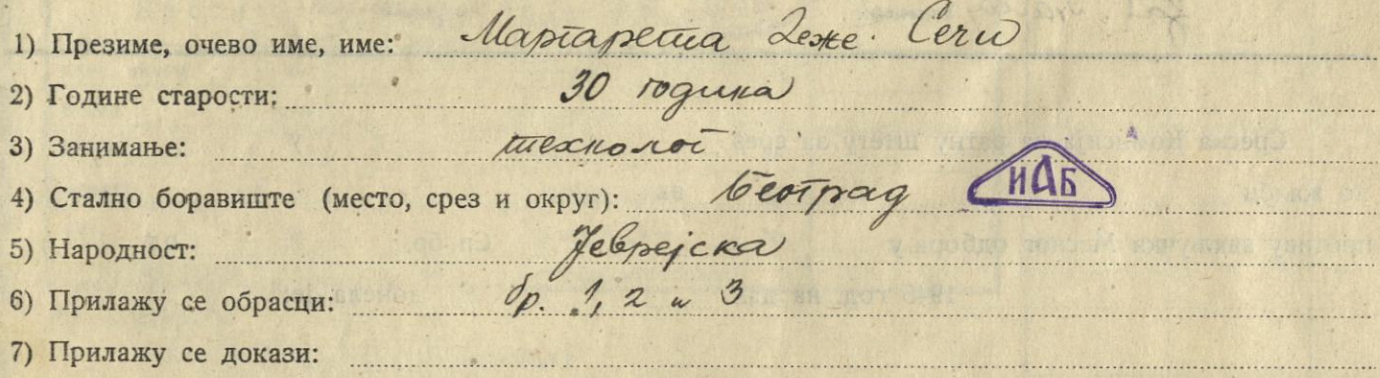 1) Презиме, очево име, име: Маргарета Геже. Сечи
2) Године старости: 30 година
3) Занимање: технолог
4) Стално боравиште (место, срез и округ): Београд
ИАБ
5) Народност: Јеврејска
6) Прилажу се обрасци: бр. 1, 2 и 3
7) Прилажу се докази: